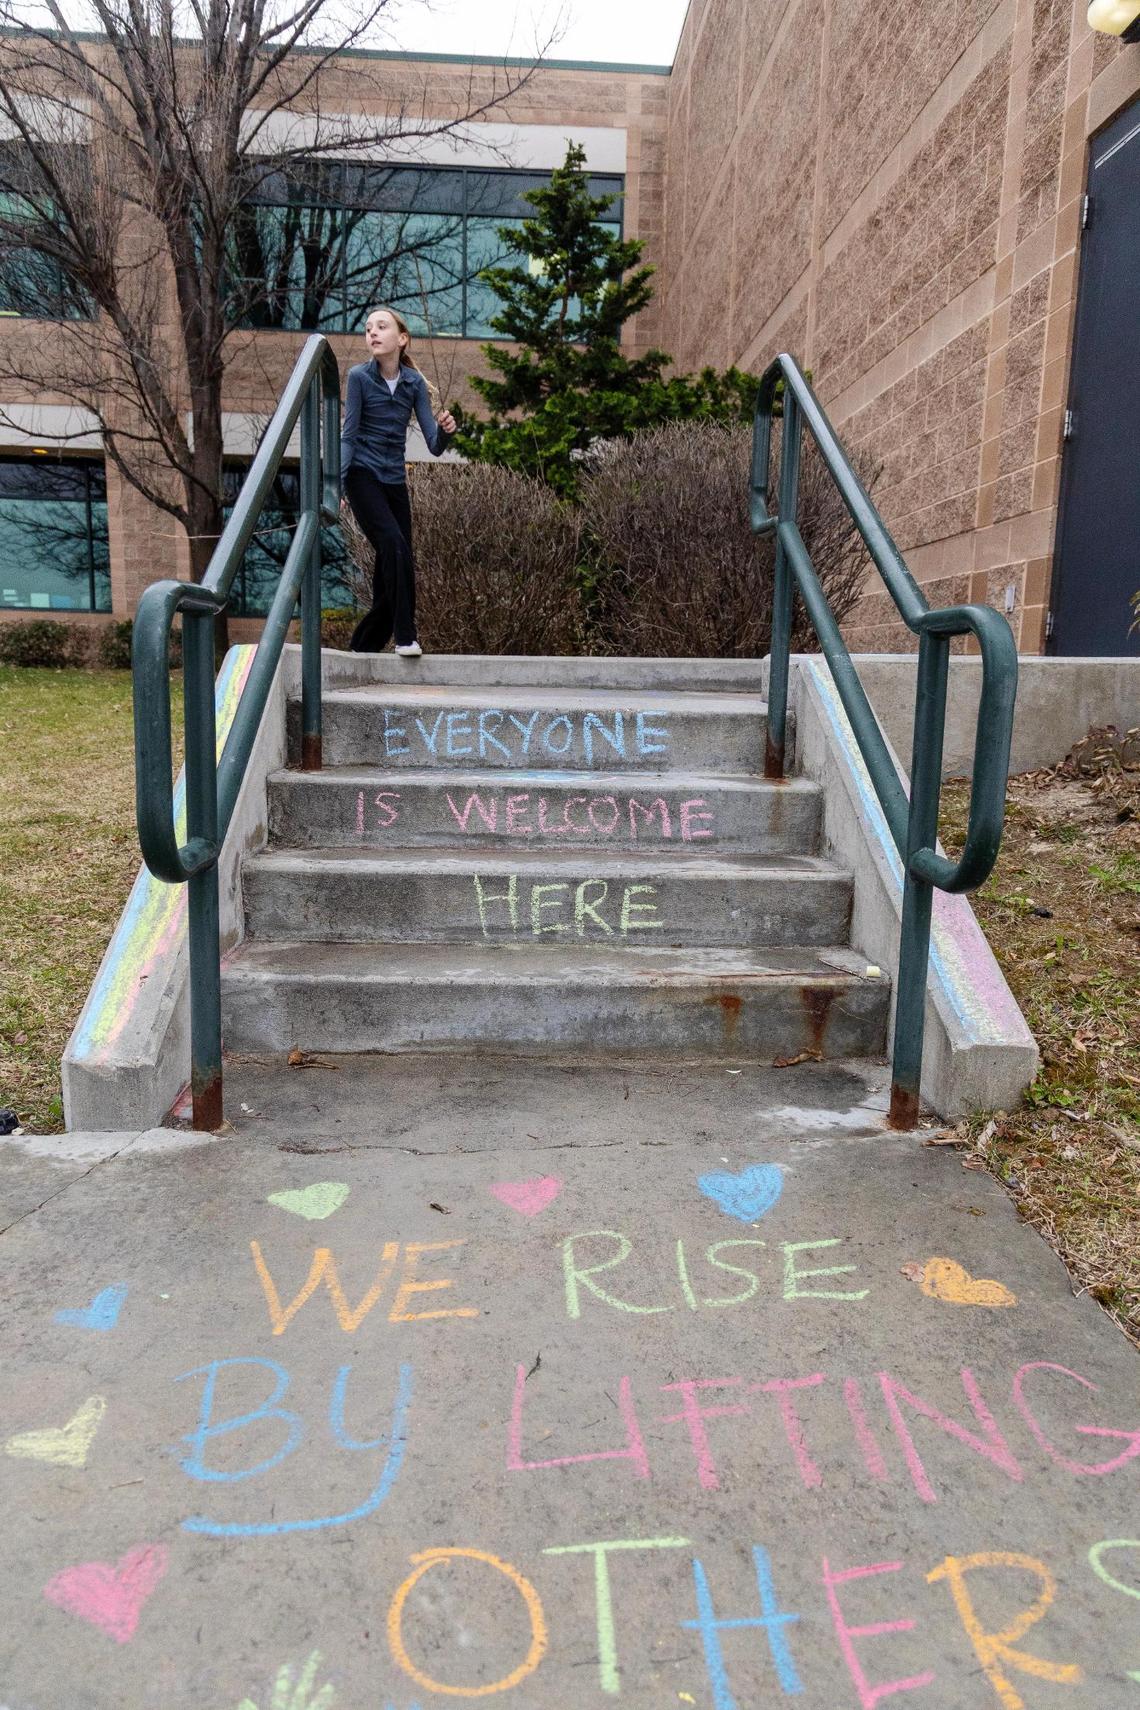 EVERYONE
IS WELCOME
HERE
WE RISE
By LIFTING
OTHERS